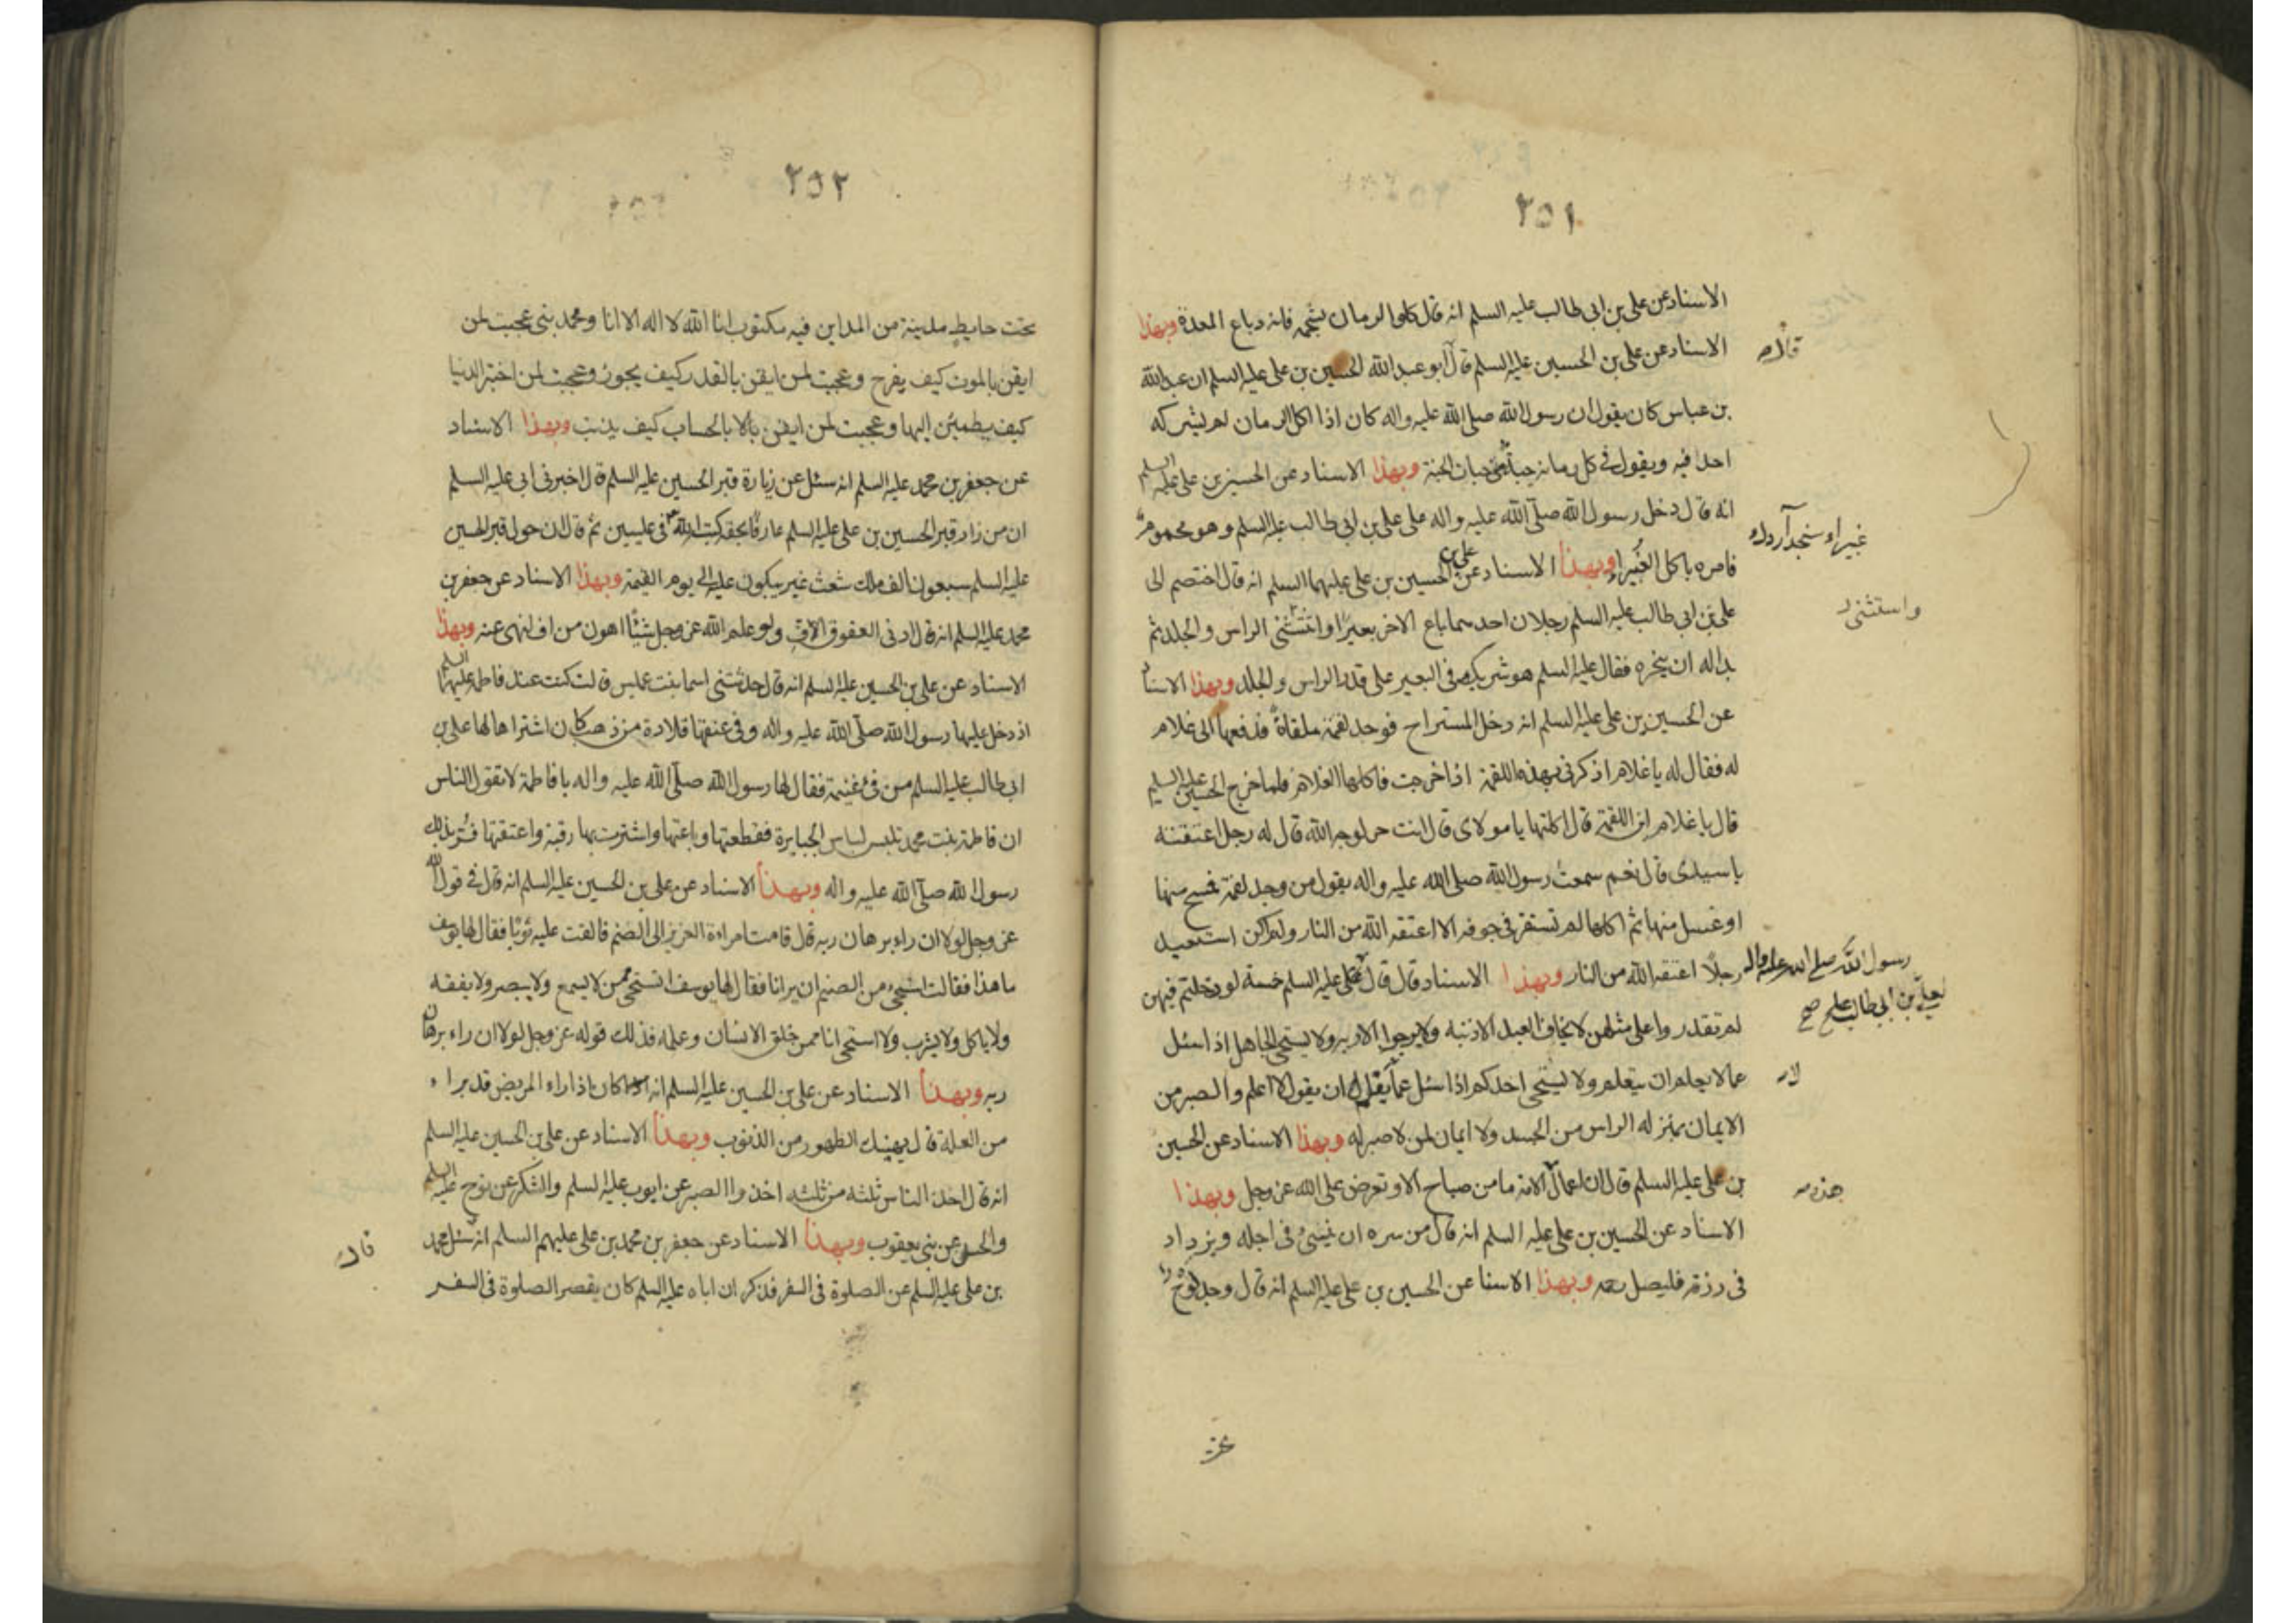 ٢٥١
الاسناد عن علي بن ابى طالب عليه السلم انه قال كلوا الرمان بشحمه فانه دباع المعدة وبهذا
الاسناد عن علي بن الحسين عليه السلم قال ابو عبد الله الحسين بن على عليه السلم ان عبد الله
بن عباس كان يقول ان رسول الله صلى الله عليه واله كان اذا اكل الرمان لم يشركه
احدا فيه ويقول فى كل رمانه حبة من حبات الجنة وبهذا الاسناد عن الحسين بن على عليه السلم
انه قال دخل رسول الله صلى الله عليه واله على على بن ابى طالب عليه السلم وهو محموم
فامره باكل الغبيراء وبهذا الاسناد عن على بن الحسين بن على عليهما السلم انه قال اختصم الى
على بن ابى طالب عليه السلم رجلان احدهما باع الاخر بعيرا واستثنى الراس والجلد ثم
بدا له ان ينحره فقال عليه السلم هو شريكه فى البعير على قدر الراس والجلد وبهذا الاسناد
عن الحسين بن على عليه السلم انه دخل المستراح فوجد لقمة ملقاة فدفعها الى غلام
له فقال له يا غلام اذكرنى بهذه اللقمة اذا خرجت فاكلها الغلام فلما خرج الحسين عليه السلم
قال يا غلام اين اللقمة قال اكلتها يا مولاى قال انت حر لوجه الله قال له رجل اعتقته
يا سيدى قال نعم سمعت رسول الله صلى الله عليه واله يقول من وجد لقمة فمسح منها
او غسل منها ثم اكلها لم تستقر فى جوفه الا اعتقه الله من النار ولم اكن استعبد
رجلا اعتقه الله من النار وبهذا الاسناد قال قال على عليه السلم خمسة لو رحلتم فيهن
لم تقدروا على مثلهن لا يخاف العبد الا ذنبه ولا يرجوا الا ربه ولا يستحى الجاهل اذا سئل
عما لا يعلم ان يتعلم ولا يستحى احدكم اذا سئل عما لا يعلم ان يقول لا اعلم والصبر من
الايمان بمنزله الراس من الجسد ولا ايمان لمن لا صبر له وبهذا الاسناد عن الحسين
بن على عليه السلم قال ان اعمال الامة ما من صباح الا وتعرض على الله عز وجل وبهذا
الاسناد عن الحسين بن على عليه السلم انه قال من سره ان ينسئ فى اجله ويزداد
فى رزقه فليصل رحمه وبهذا الاسنا عن الحسين بن على عليه السلم انه قال وجد لوح
غبيراء سنجد
واستثنى
رسول الله صلى الله عليه واله
لعلى بن ابى طالب عليه صح
هذه
٢٥٢
تحت حايط مدينة من المداين فيه مكتوب انا الله لا اله الا انا ومحمد نبى عجبت لمن
ايقن بالموت كيف يفرح وعجبت لمن ايقن بالقدر كيف يحزن وعجبت لمن اختبر الدنيا
كيف يطمئن اليها وعجبت لمن ايقن بالحساب كيف يذنب وبهذا الاسناد
عن جعفر بن محمد عليه السلم انه سئل عن زيارة قبر الحسين عليه السلم قال اخبرنى ابى عليه السلم
ان من زار قبر الحسين بن على عليه السلم عارفا بحقه كتبه الله فى عليين ثم قال ان حول قبر الحسين
عليه السلم سبعون الف ملك شعث غبر يبكون عليه الى يوم القيمة وبهذا الاسناد عن جعفر بن
محمد عليه السلم انه قال ادنى العقوق الاف ولو علم الله عز وجل شيئا اهون من اف لنهى عنه وبهذا
الاسناد عن على بن الحسين عليه السلم انه قال حدثتنى اسما بنت عميس قالت كنت عند فاطمه عليها السلم
اذ دخل عليها رسول الله صلى الله عليه واله وفى عنقها قلادة من ذهب كان اشتراها لها على بن
ابى طالب عليه السلم من فئ غنيمة فقال لها رسول الله صلى الله عليه واله يا فاطمة لا تقول الناس
ان فاطمة بنت محمد تلبس لباس الجبابرة فقطعتها وباعتها واشترت بها رقبة واعتقتها فسر بذلك
رسول الله صلى الله عليه واله وبهذا الاسناد عن على بن الحسين عليه السلم انه قال فى قول الله
عز وجل لولا ان راء برهان ربه قال قامت امراءة العزيز الى الصنم فالقت عليه ثوبا فقال لها يوسف
ما هذا فقالت استحى من الصنم ان يرانا فقال لها يوسف اتستحى ممن لا يسمع ولا يبصر ولا يفقه
ولا ياكل ولا يشرب ولا استحى انا ممن خلق الانسان وعلمه فذلك قوله عز وجل لولا ان راء برهان
ربه وبهذا الاسناد عن على بن الحسين عليه السلم انه كان اذا راء المريض قد براء
من العلة قال يهنيك الطهور من الذنوب وبهذا الاسناد عن على بن الحسين عليه السلم
انه قال اخذ الناس ثلثه من ثلثه اخذوا الصبر عن ايوب عليه السلم والشكر عن نوح عليه السلم
والحسد عن بنى يعقوب وبهذا الاسناد عن جعفر بن محمد بن على عليهم السلم انه سئل محمد
بن على عليه السلم عن الصلوة فى السفر فذكر ان اباه عليه السلم كان يقصر الصلوة فى السفر